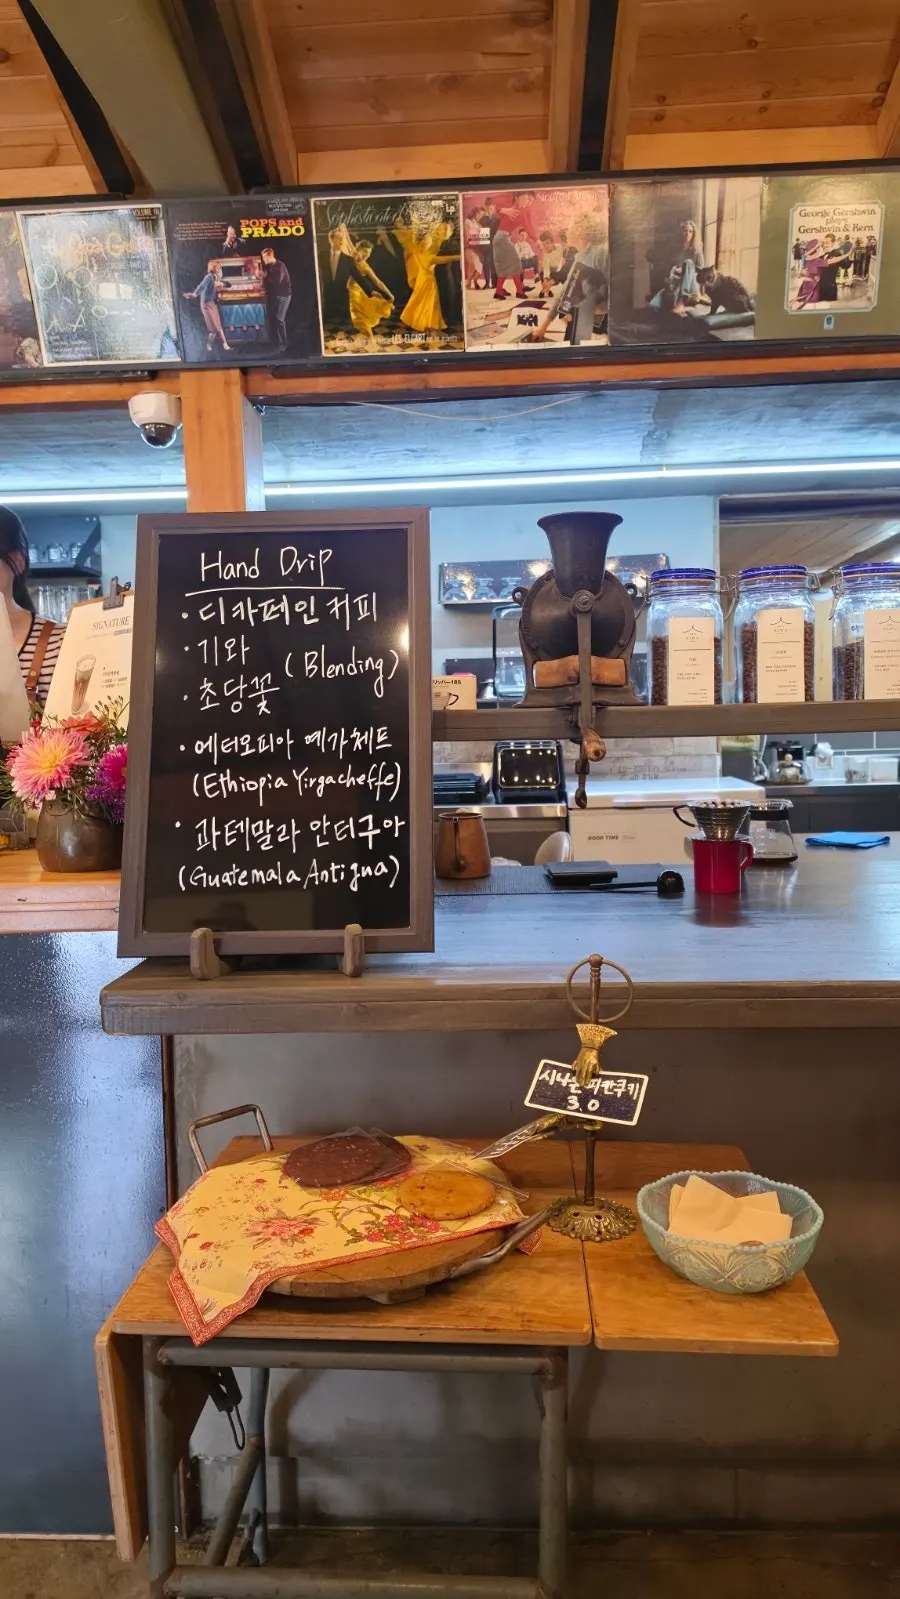 VOLUME III
POPS and
PRADO
Sophisticated
LES ELGART
George Gershwin
plays
Gershwin & Kern
SIGNATURE
Hand Drip
· 디카페인 커피
· 기와
(Blending)
· 초당꽃
· 에티오피아 예가체프
(Ethiopia Yirgacheffe)
· 과테말라 안티구아
(Guatemala Antigua)
KIWA
GOOD TIME
시나몬 피칸쿠키
3.0